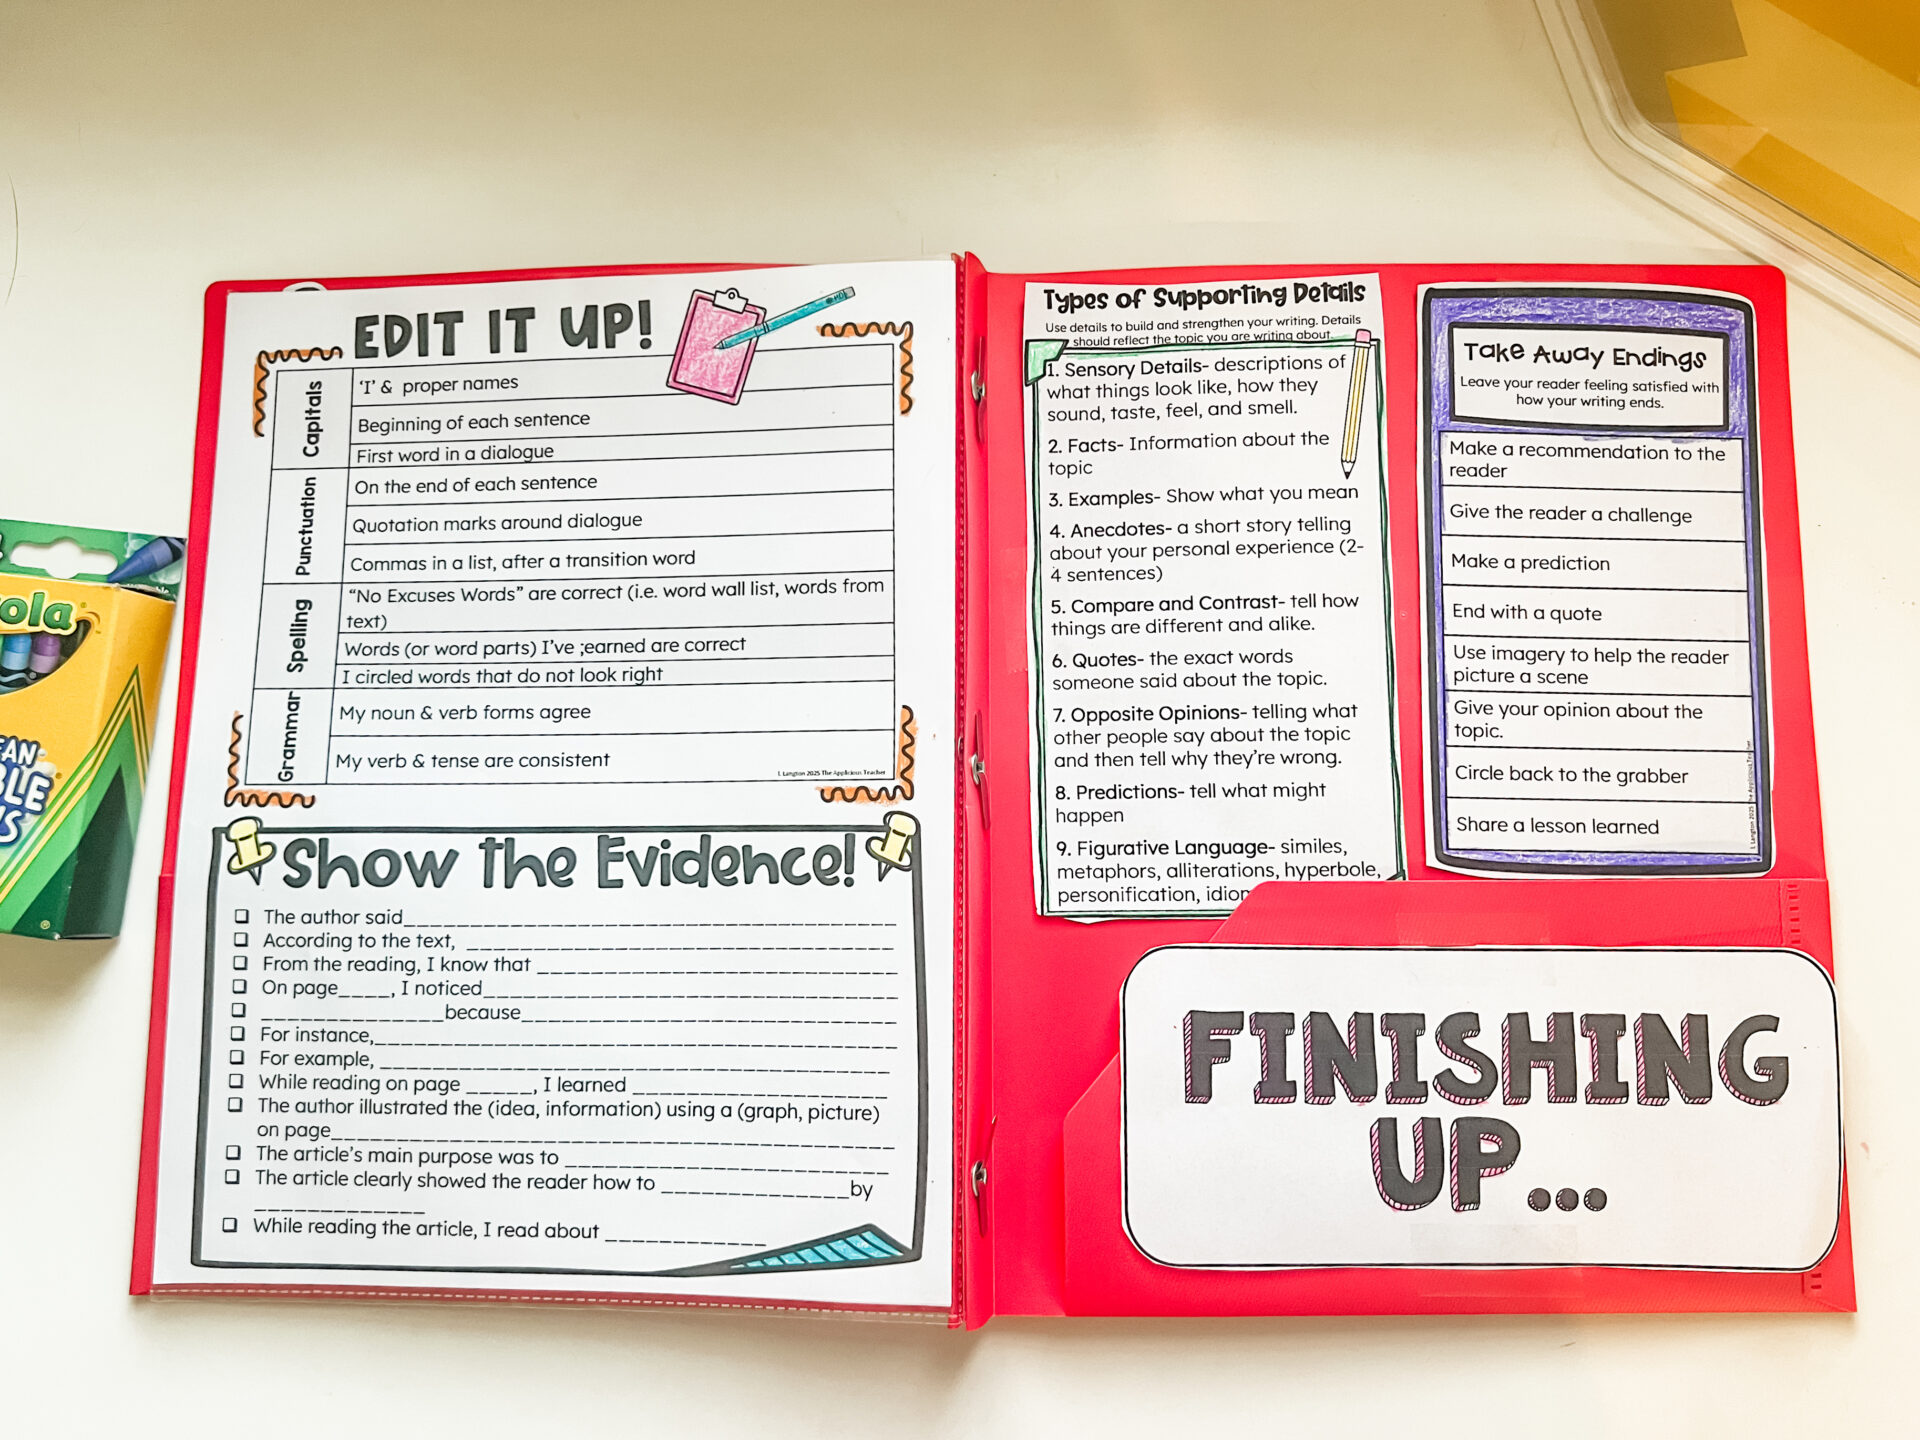 EDIT IT UP!
Capitals
'I' & proper names
Beginning of each sentence
First word in a dialogue
Punctuation
On the end of each sentence
Quotation marks around dialogue
Commas in a list, after a transition word
Spelling
"No Excuses Words" are correct (i.e. word wall list, words from
text)
Words (or word parts) I've ;earned are correct
I circled words that do not look right
Grammar
My noun & verb forms agree
My verb & tense are consistent
L Langton 2025 The Applicious Teacher
Show the Evidence!
The author said____
According to the text, ____
From the reading, I know that ____
On page____, I noticed____
____because____
For instance,____
For example, ____
While reading on page ____, I learned ____
The author illustrated the (idea, information) using a (graph, picture)
on page____
The article's main purpose was to ____
The article clearly showed the reader how to ____by
____
While reading the article, I read about ____
Types of Supporting Details
Use details to build and strengthen your writing. Details
should reflect the topic you are writing about.
1. Sensory Details- descriptions of
what things look like, how they
sound, taste, feel, and smell.
2. Facts- Information about the
topic
3. Examples- Show what you mean
4. Anecdotes- a short story telling
about your personal experience (2-
4 sentences)
5. Compare and Contrast- tell how
things are different and alike.
6. Quotes- the exact words
someone said about the topic.
7. Opposite Opinions- telling what
other people say about the topic
and then tell why they're wrong.
8. Predictions- tell what might
happen
9. Figurative Language- similes,
metaphors, alliterations, hyperbole,
personification, idiom
Take Away Endings
Leave your reader feeling satisfied with
how your writing ends.
Make a recommendation to the
reader
Give the reader a challenge
Make a prediction
End with a quote
Use imagery to help the reader
picture a scene
Give your opinion about the
topic.
Circle back to the grabber
Share a lesson learned
L Langton 2025 The Applicious Teacher
FINISHING
UP...
ola
EAN
BLE
NS